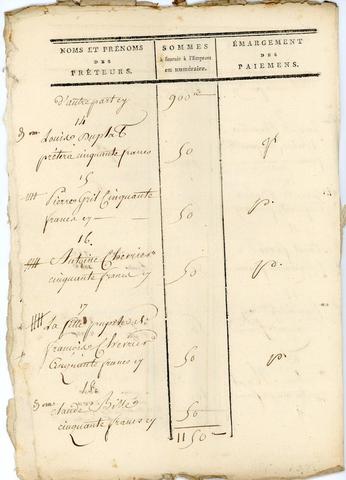 NOMS ET PRÉNOMS
DES
PRÊTEURS.
SOMMES
à fournir à l'Emprunt
en numéraire.
ÉMARGEMENT
DES
PAIEMENS.
d'autre part cy 900
14
Louis
prétera cinquante francs 50
15
Pierre Gril Cinquante
francs cy 50 p.
16
Antoine Chevrier
cinquante francs cy 50 p.
17
La
francoise Chevrier
Cinquante francs cy 50 p
18
claude 50
cinquante francs cy
1150